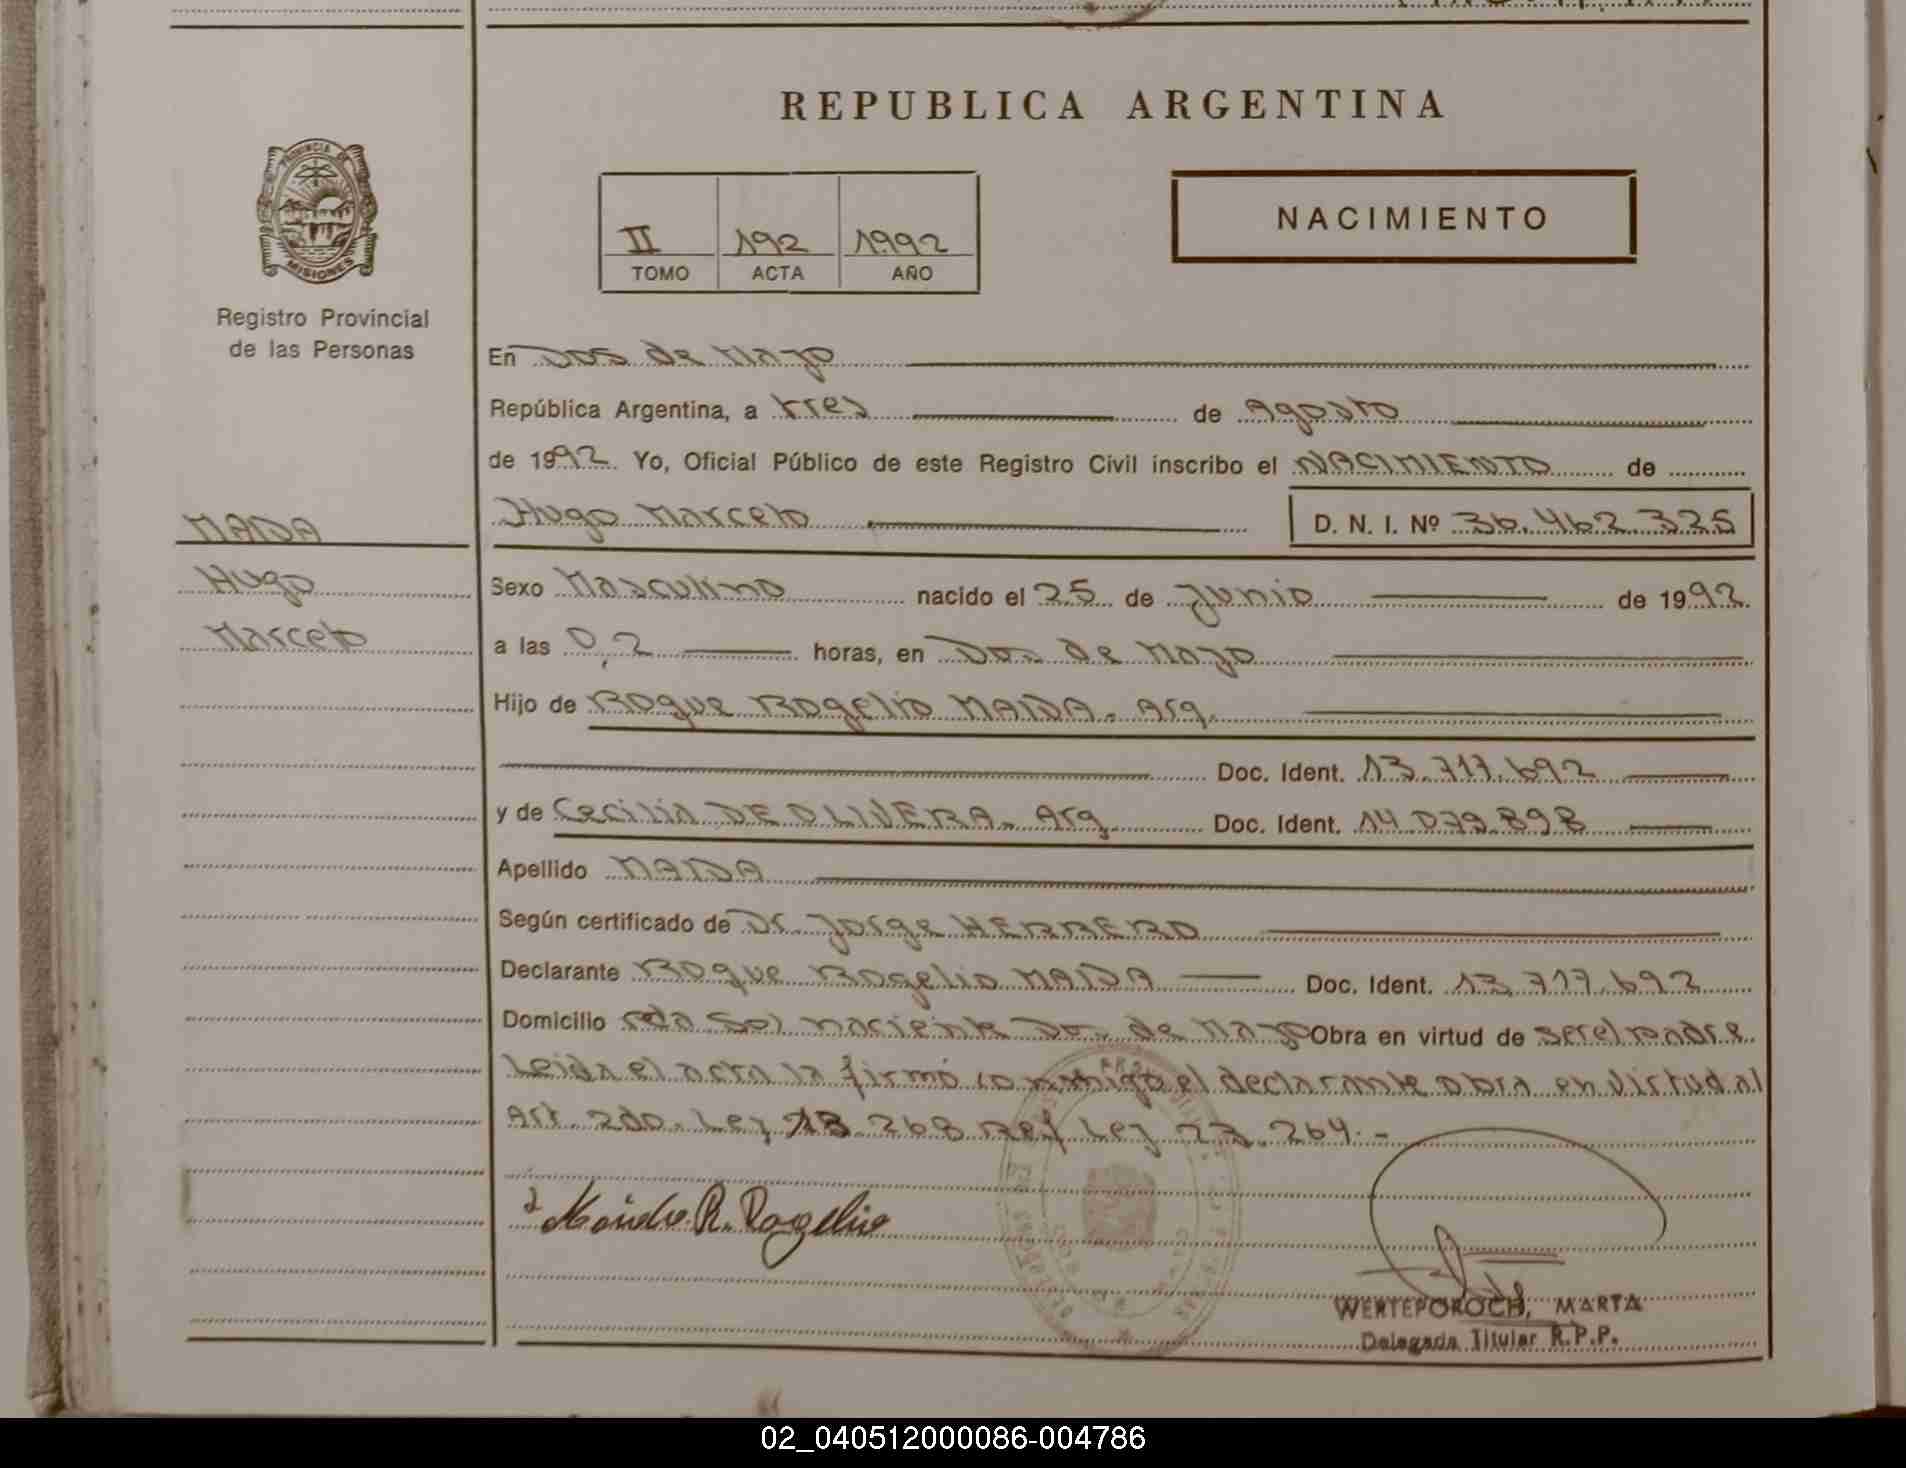 REPUBLICA ARGENTINA
PROVINCIA DE MISIONES
Registro Provincial
de las Personas
II 192 1992
TOMO ACTA AÑO
NACIMIENTO
En Dos de Mayo
República Argentina, a tres de Agosto
de 1992. Yo, Oficial Público de este Registro Civil inscribo el NACIMIENTO de
Hugo Marcelo D. N. I. Nº 36.462.325
MAIDA
Hugo
Marcelo
Sexo Masculino nacido el 25 de Junio de 1992.
a las 0,2 horas, en Dos de Mayo
Hijo de Roque Rogelio MAIDA. Arg.
Doc. Ident. 13.717.692
y de Cecilia DE OLIVERA. Arg. Doc. Ident. 14.079.898
Apellido MAIDA
Según certificado de Dr. Jorge HERRERO
Declarante Roque Rogelio MAIDA Doc. Ident. 13.717.692
Domicilio Sol naciente Dos de Mayo Obra en virtud de ser el padre.
Leida el acta la firmó conmigo el declarante obra en virtud al
Art. 2do. Ley 18.268 Ley 23.264.-
R. Rogelio
WERTEPOROCH, MARTA
Delegada Titular R.P.P.
02_040512000086-004786